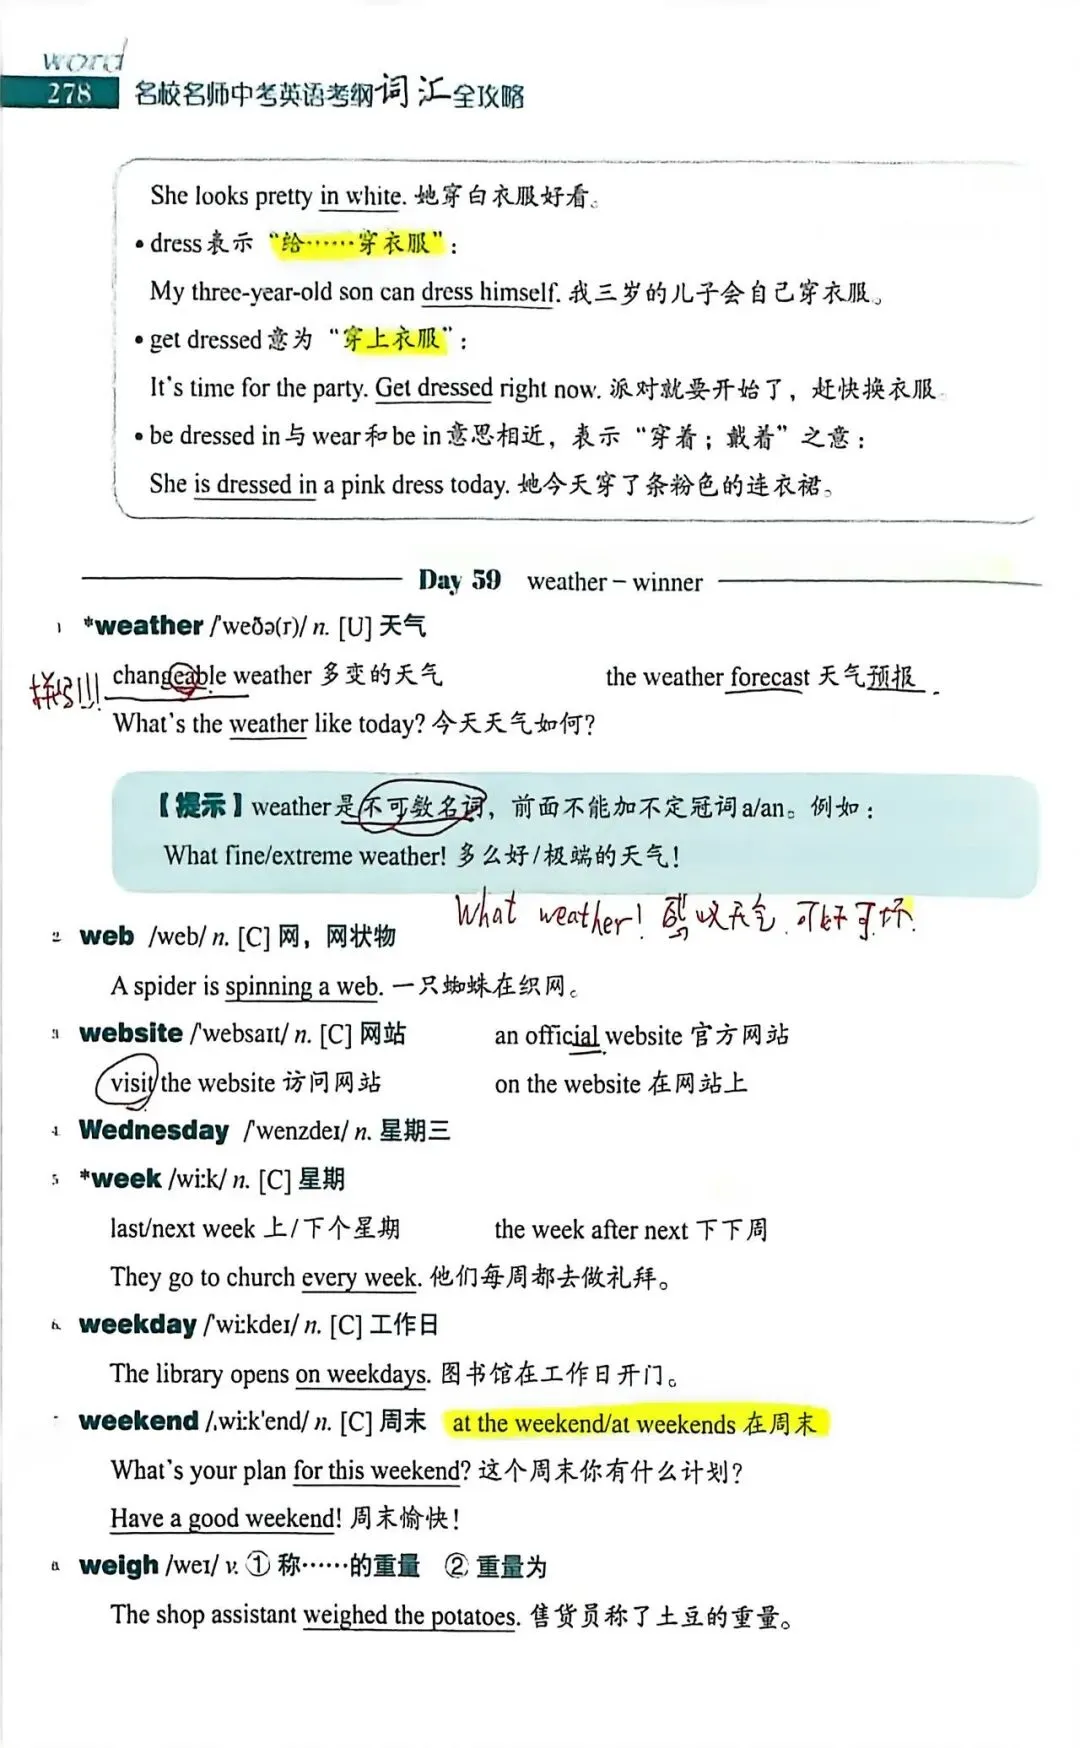 word
278 名校名师中考英语考纲词汇全攻略
She looks pretty in white. 她穿白衣服好看。
• dress表示“给……穿衣服”：
My three-year-old son can dress himself. 我三岁的儿子会自己穿衣服。
• get dressed意为“穿上衣服”：
It's time for the party. Get dressed right now. 派对就要开始了，赶快换衣服。
• be dressed in与wear和be in意思相近，表示“穿着；戴着”之意：
She is dressed in a pink dress today. 她今天穿了条粉色的连衣裙。
Day 59 weather – winner
1 *weather /'weðə(r)/ n. [U] 天气
拼写!!! changeable weather 多变的天气 the weather forecast 天气预报
What's the weather like today? 今天天气如何？
【提示】weather是不可数名词，前面不能加不定冠词a/an。例如：
What fine/extreme weather! 多么好/极端的天气！
What weather! 天气 可好可坏
2 web /web/ n. [C] 网，网状物
A spider is spinning a web. 一只蜘蛛在织网。
3 website /'websaɪt/ n. [C] 网站 an official website 官方网站
visit the website 访问网站 on the website 在网站上
4 Wednesday /'wenzdeɪ/ n. 星期三
5 *week /wiːk/ n. [C] 星期
last/next week 上/下个星期 the week after next 下下周
They go to church every week. 他们每周都去做礼拜。
6 weekday /'wiːkdeɪ/ n. [C] 工作日
The library opens on weekdays. 图书馆在工作日开门。
weekend /ˌwiːk'end/ n. [C] 周末 at the weekend/at weekends 在周末
What's your plan for this weekend? 这个周末你有什么计划？
Have a good weekend! 周末愉快！
8 weigh /weɪ/ v. ① 称……的重量 ② 重量为
The shop assistant weighed the potatoes. 售货员称了土豆的重量。